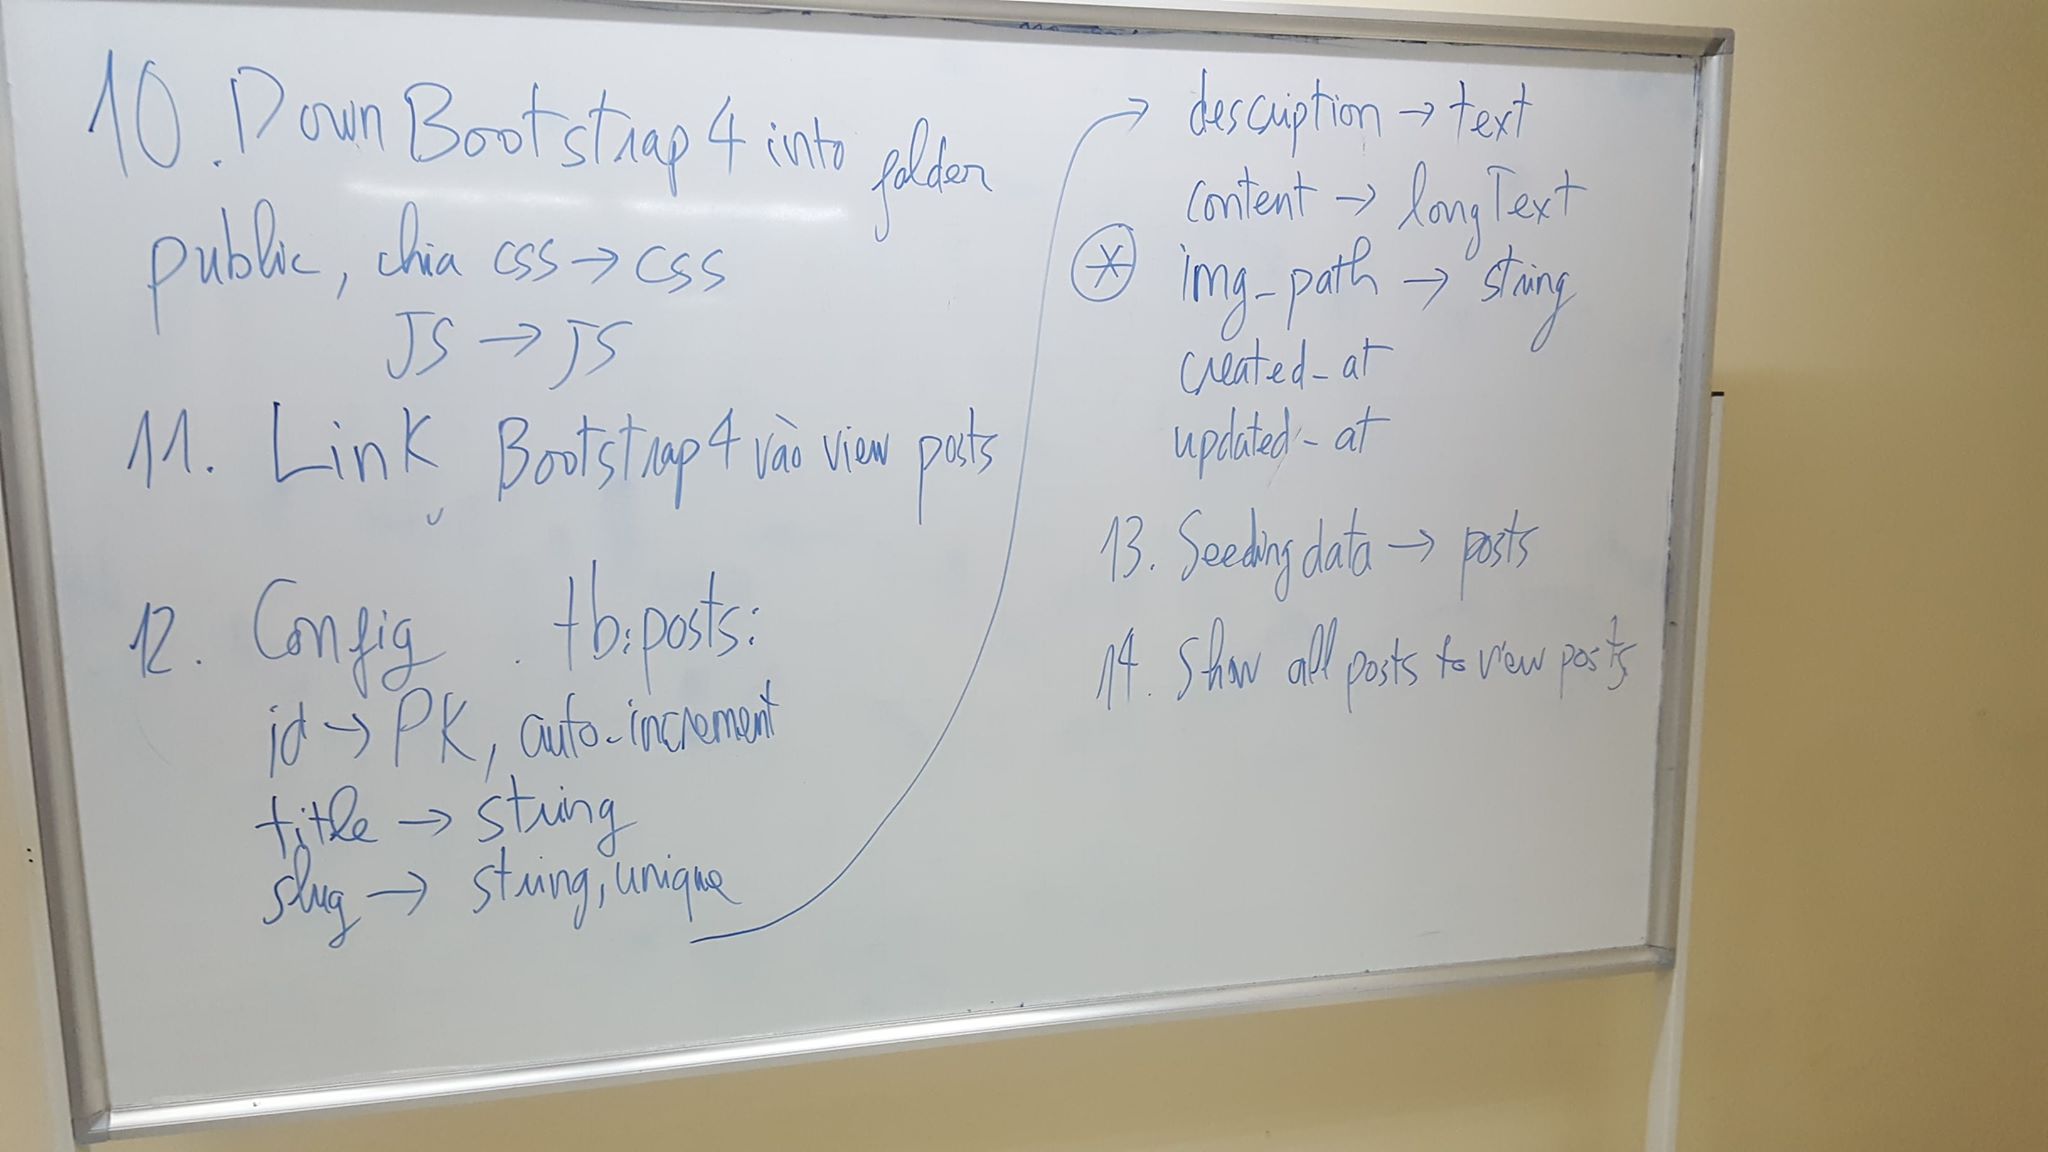 10. Down Bootstrap 4 into folder
public, chia css → css
JS → JS
11. Link Bootstrap 4 vào view posts
12. Config tb: posts:
id → PK, auto-increment
title → string
slug → string, unique
→ description → text
content → longText
* img_path → string
created_at
updated_at
13. Seeding data → posts
14. Show all posts to view posts